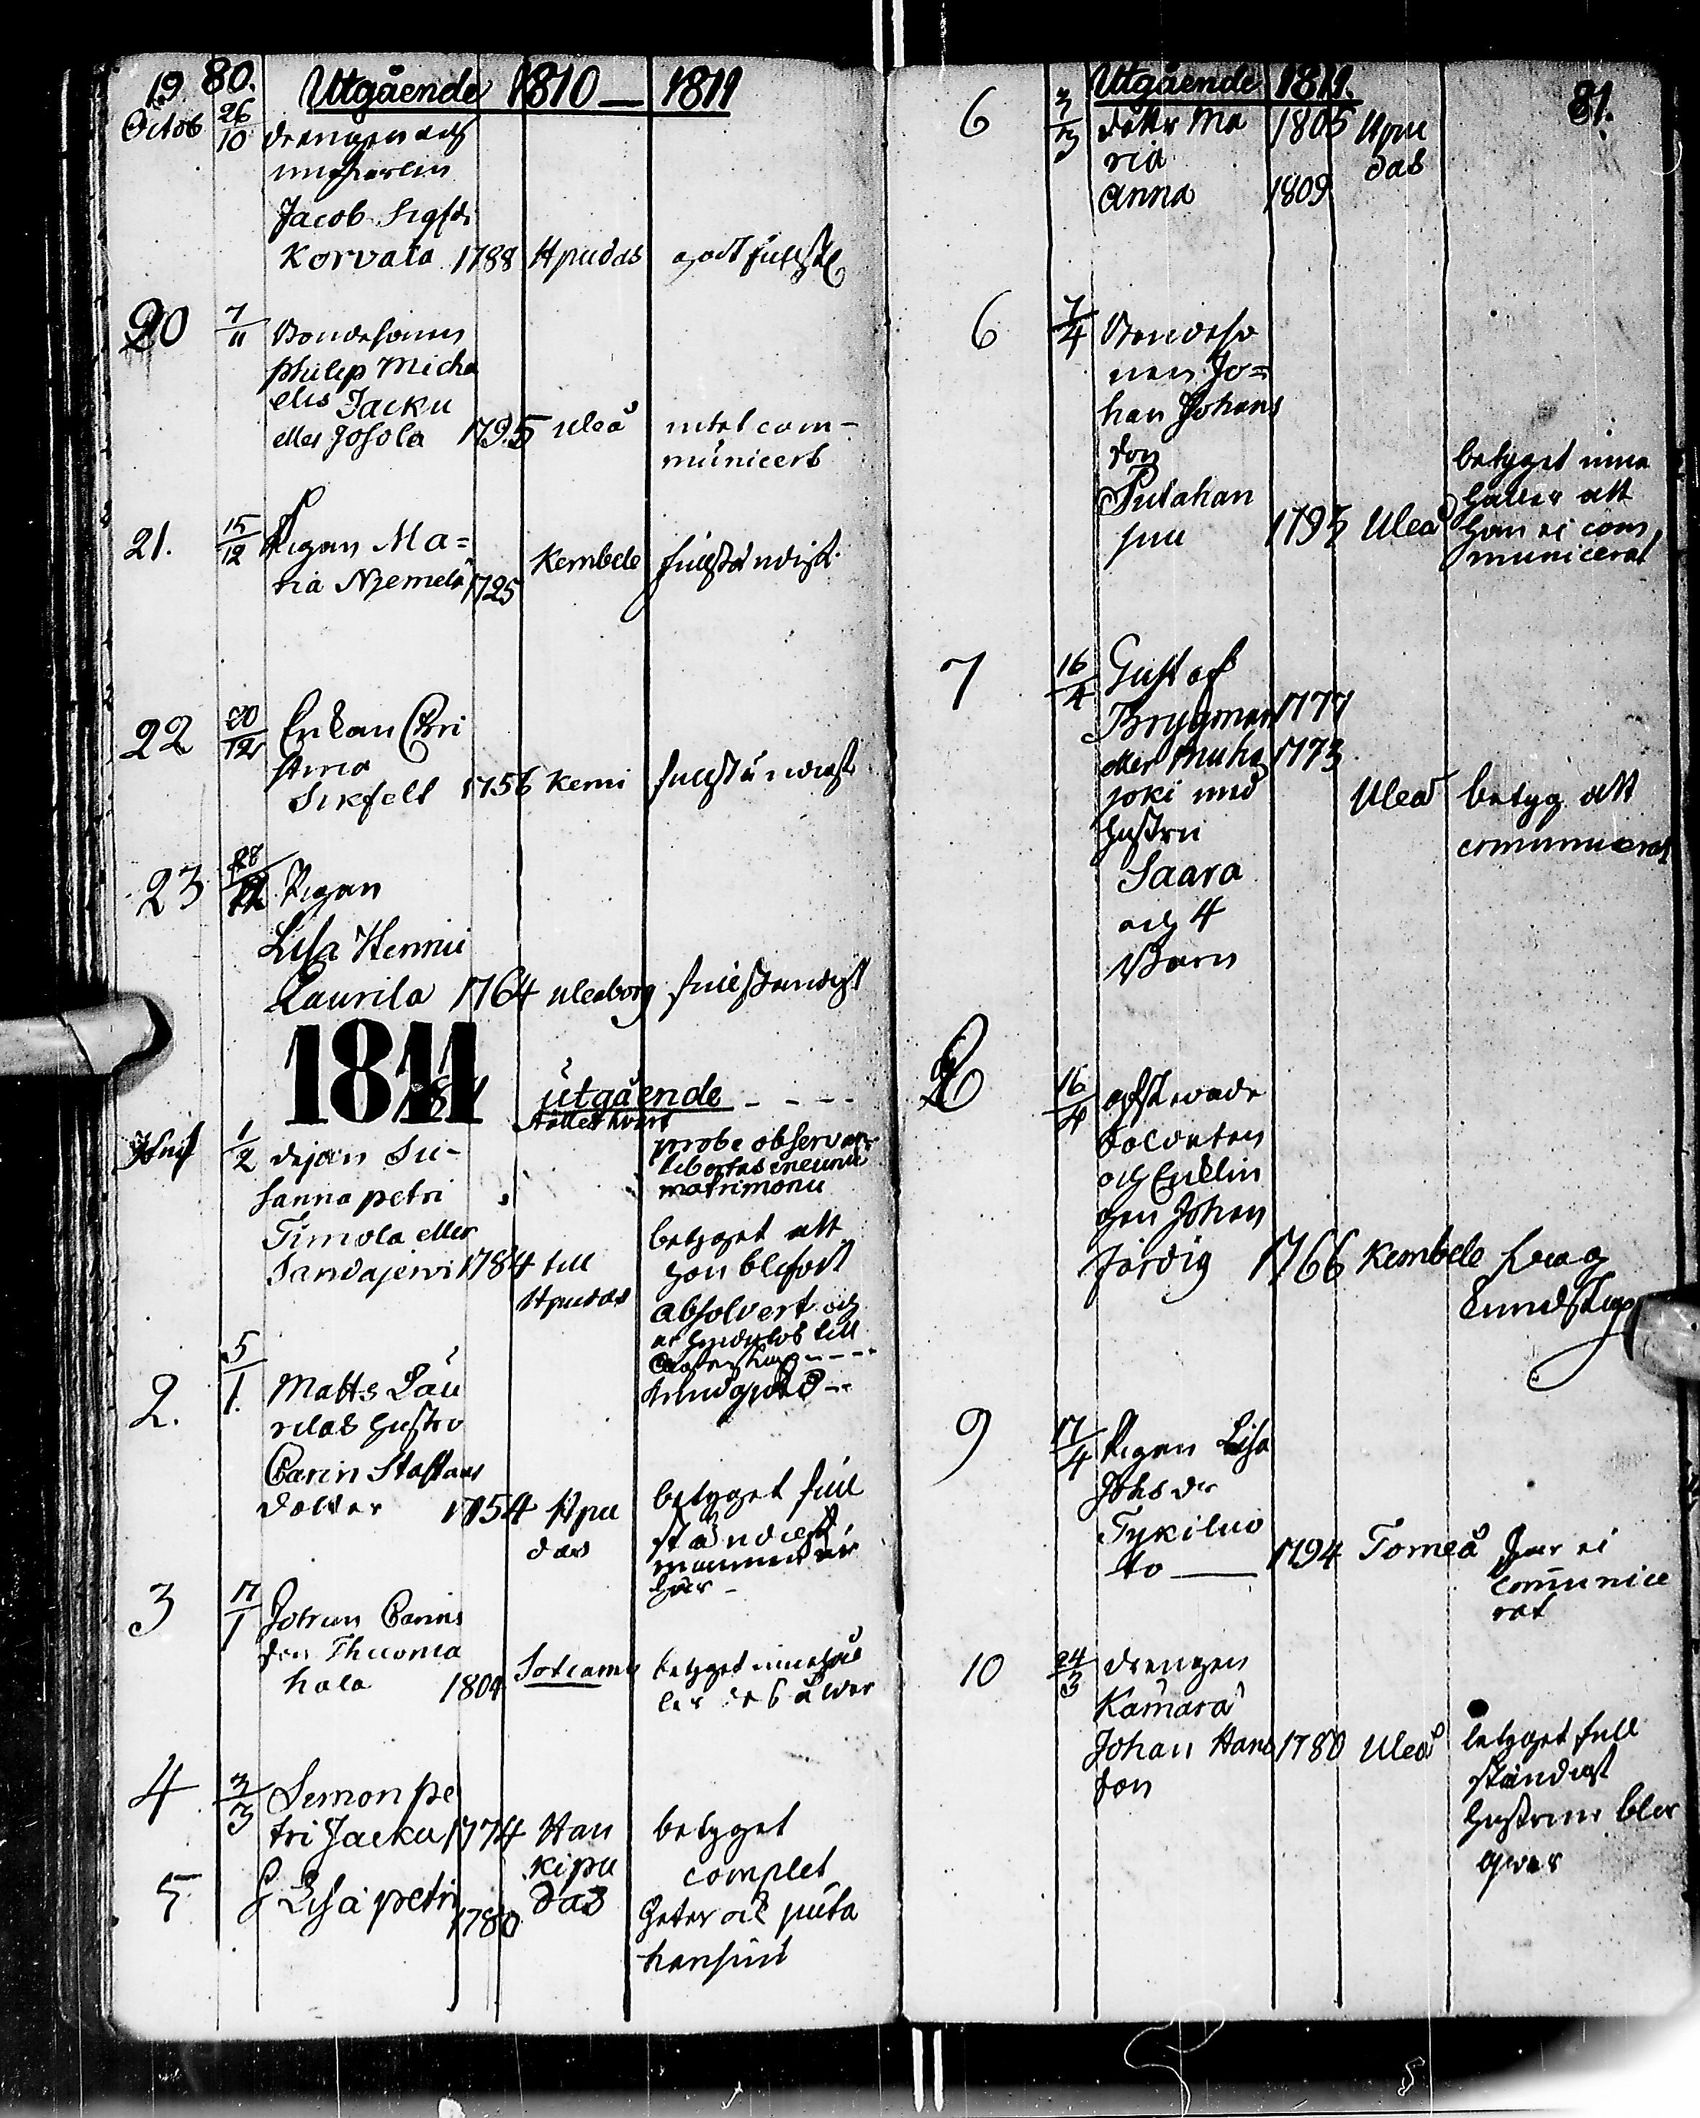 80.
Utgående 1810 — 1811
19 Octob 26/10 drengen och
Jacob Sigfr.
Korvala 1788 Hpudas godt fullst
20 7/11 Bondesonen
Philip Micha
elis Jacku
eller Josola 1795 Uleå intet com-
municert
21. 15/12 Pigan Ma=
ria Niemelä 1725 Kembele fullständigt
22 20/12 Enkan Chri
stina
Sirfelt 1756 Kemi fullständigt
23 28/12 Pigan
Lisa Hennu
Laurila 1764 Uleaborg fullständigt
1811
utgående - - - -
stället hvart
1/2 Dejan Su-
sanna petri
Timola eller
Tandajervi 1784 till
Hpudas
probe observa
libertas ineundi
matrimonii
betyget att
hon blifvit
absolvert och
2. 5/1. Matts Lau
rilas hustro
Carin Staffans
dotter 1754 Hpu
das
betyget full
ständigt
mannen är
här -
3 17/1 Johan Carins
son Thuoma
hala 1804 Sotcamo betyget innehål
ler
4 3/3 Semon pe
tri Jacku 1774 Hau
kipu
das
betyget
complet
5 Lisa petri 1780
heter ock puta
hansuu
Utgående 1811.
81.
6 3/3 dottr Ma 1805 Hpu
ria das
Anna 1809
6 7/4 Bondeso
nen Jo=
han Johans
son
Putahan
suu 1795 Uleå
betyget inne
håller att
han ei com
municerat
7 16/4 Gustaf
Brygman 1777
eller Muha 1773
joki med
hustru
Saara
och 4
Barn
Uleå betyg att
communicerat
8 16/4 afskedade
Soldaten
och Enklin
gen Johan
färdig 1766 Kembele
9 17/4 Pigan Lisa
Johs dr
Tykiluo
to — 1794 Torneå har ei
communice
rat
10 24/3 drengen
Kamara
Johan Hans 1780 Uleå
son
betyget full
ständigt
hustrun blir
qvar